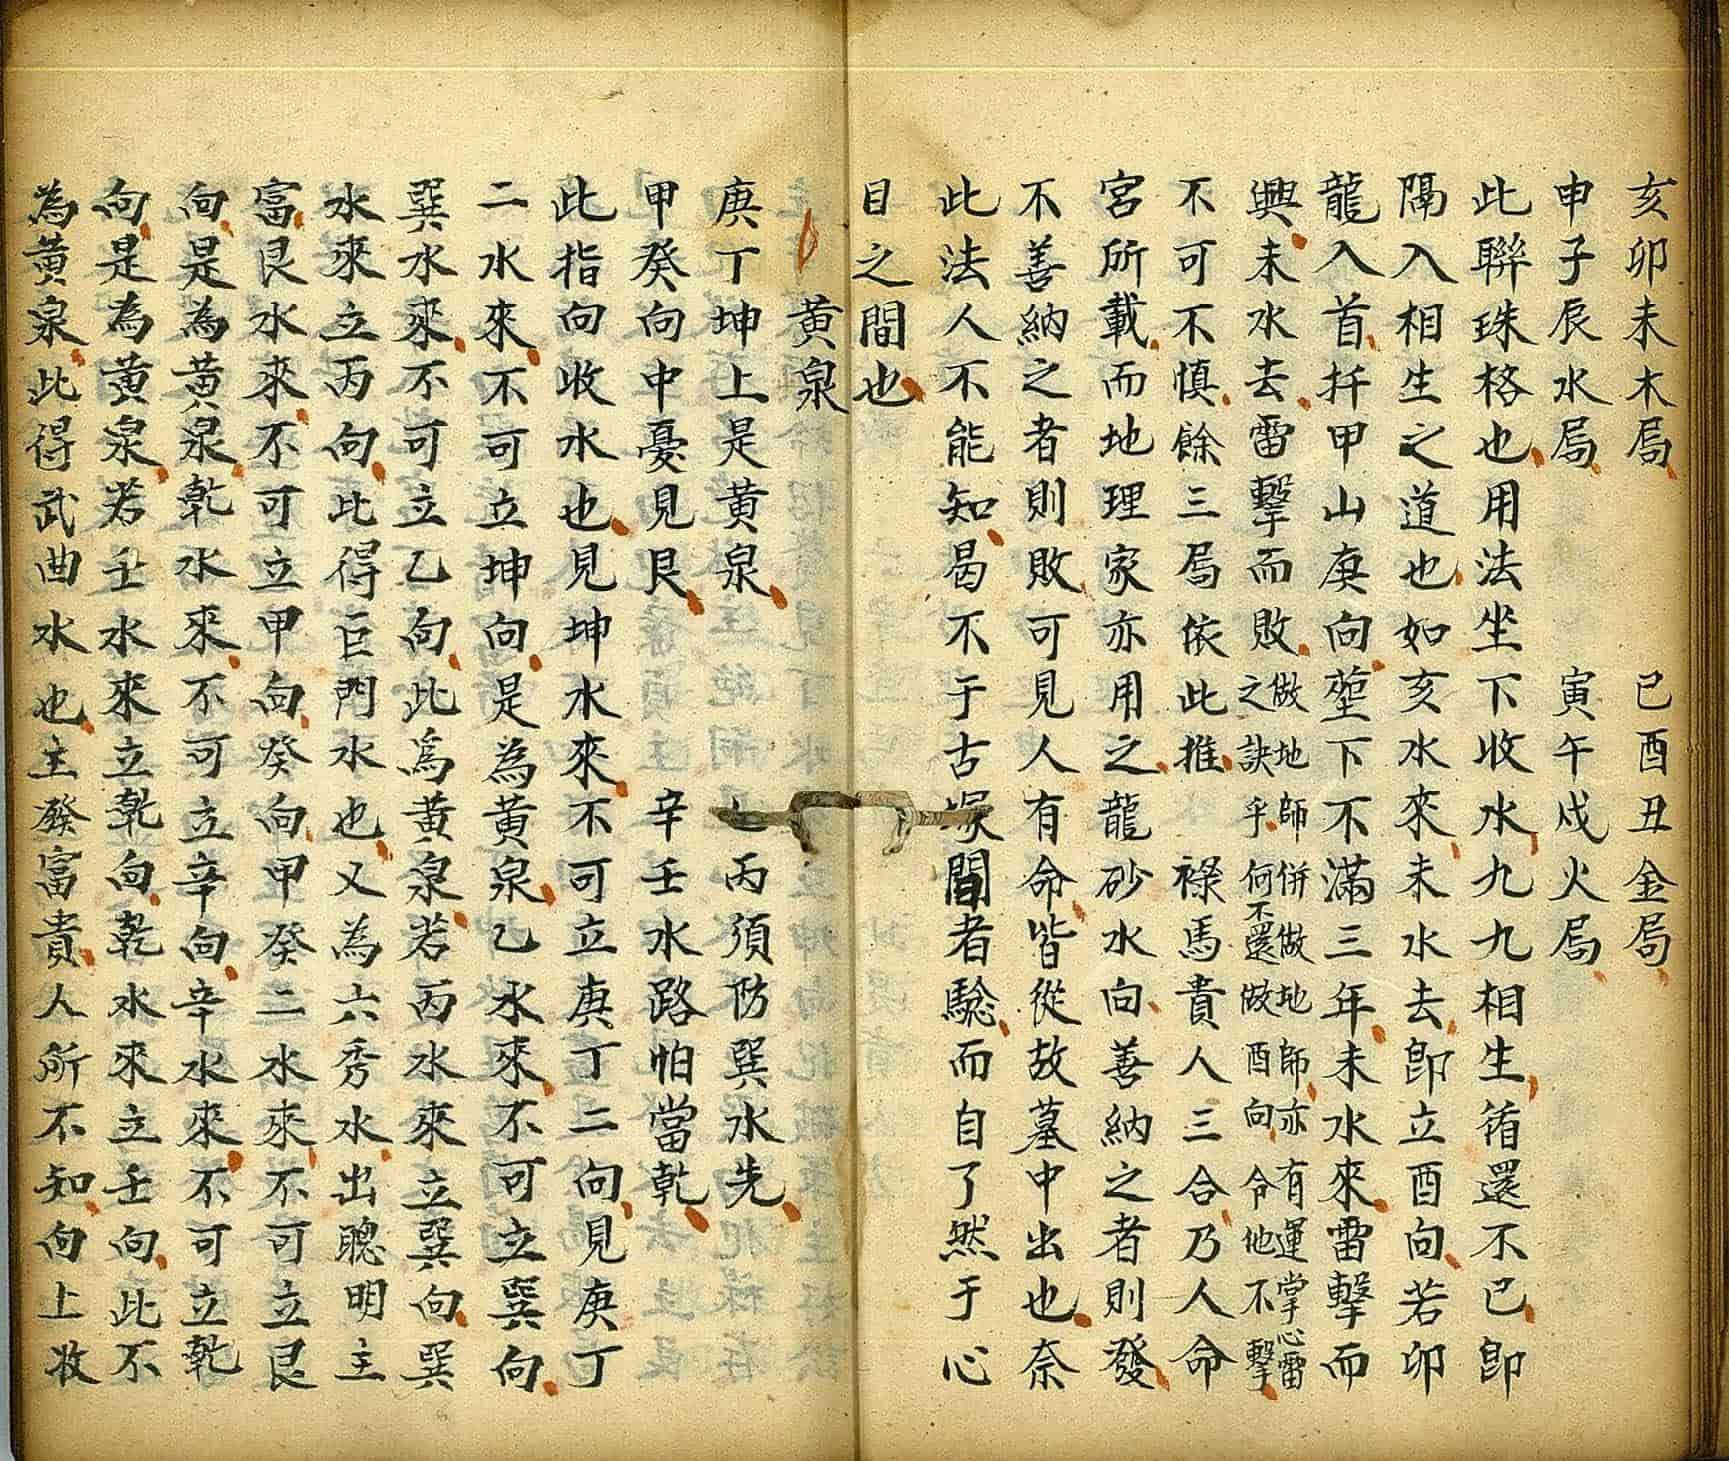 亥卯未木局 巳酉丑金局
申子辰水局 寅午戌火局
此聯珠格也用法坐下收水九九相生循還不已即
隔入相生之道也如亥水來未水去即立酉向若卯
龍入首扦甲山庚向塟下不滿三年未水來雷擊而
興未水去雷擊而敗做地師併做地師亦有運掌心雷之訣乎何不還做酉向令他不擊
不可不慎餘三局依此推 祿馬貴人三合乃人命
宮所載而地理家亦用之龍砂水向善納之者則發
不善納之者則敗可見人有命皆從故墓中出也奈
此法人不能知曷不于古塚間者驗而自了然于心
目之間也
黃泉
庚丁坤上是黃泉 乙丙須防巽水先
甲癸向中憂見艮 辛壬水路怕當乾
此指向收水也見坤水來不可立庚丁二向見庚丁
二水來不可立坤向是為黃泉乙水來不可立巽向
巽水來不可立乙向此爲黃泉若丙水來立巽向巽
水來立丙向此得巨門水也又為六秀水出聰明主
富艮水來不可立甲向癸向甲癸二水來不可立艮
向是為黃泉乾水來不可立辛向辛水來不可立乾
向是為黃泉若壬水來立乾向乾水來立壬向此不
為黃泉此得武曲水也主發富貴人所不知向上收